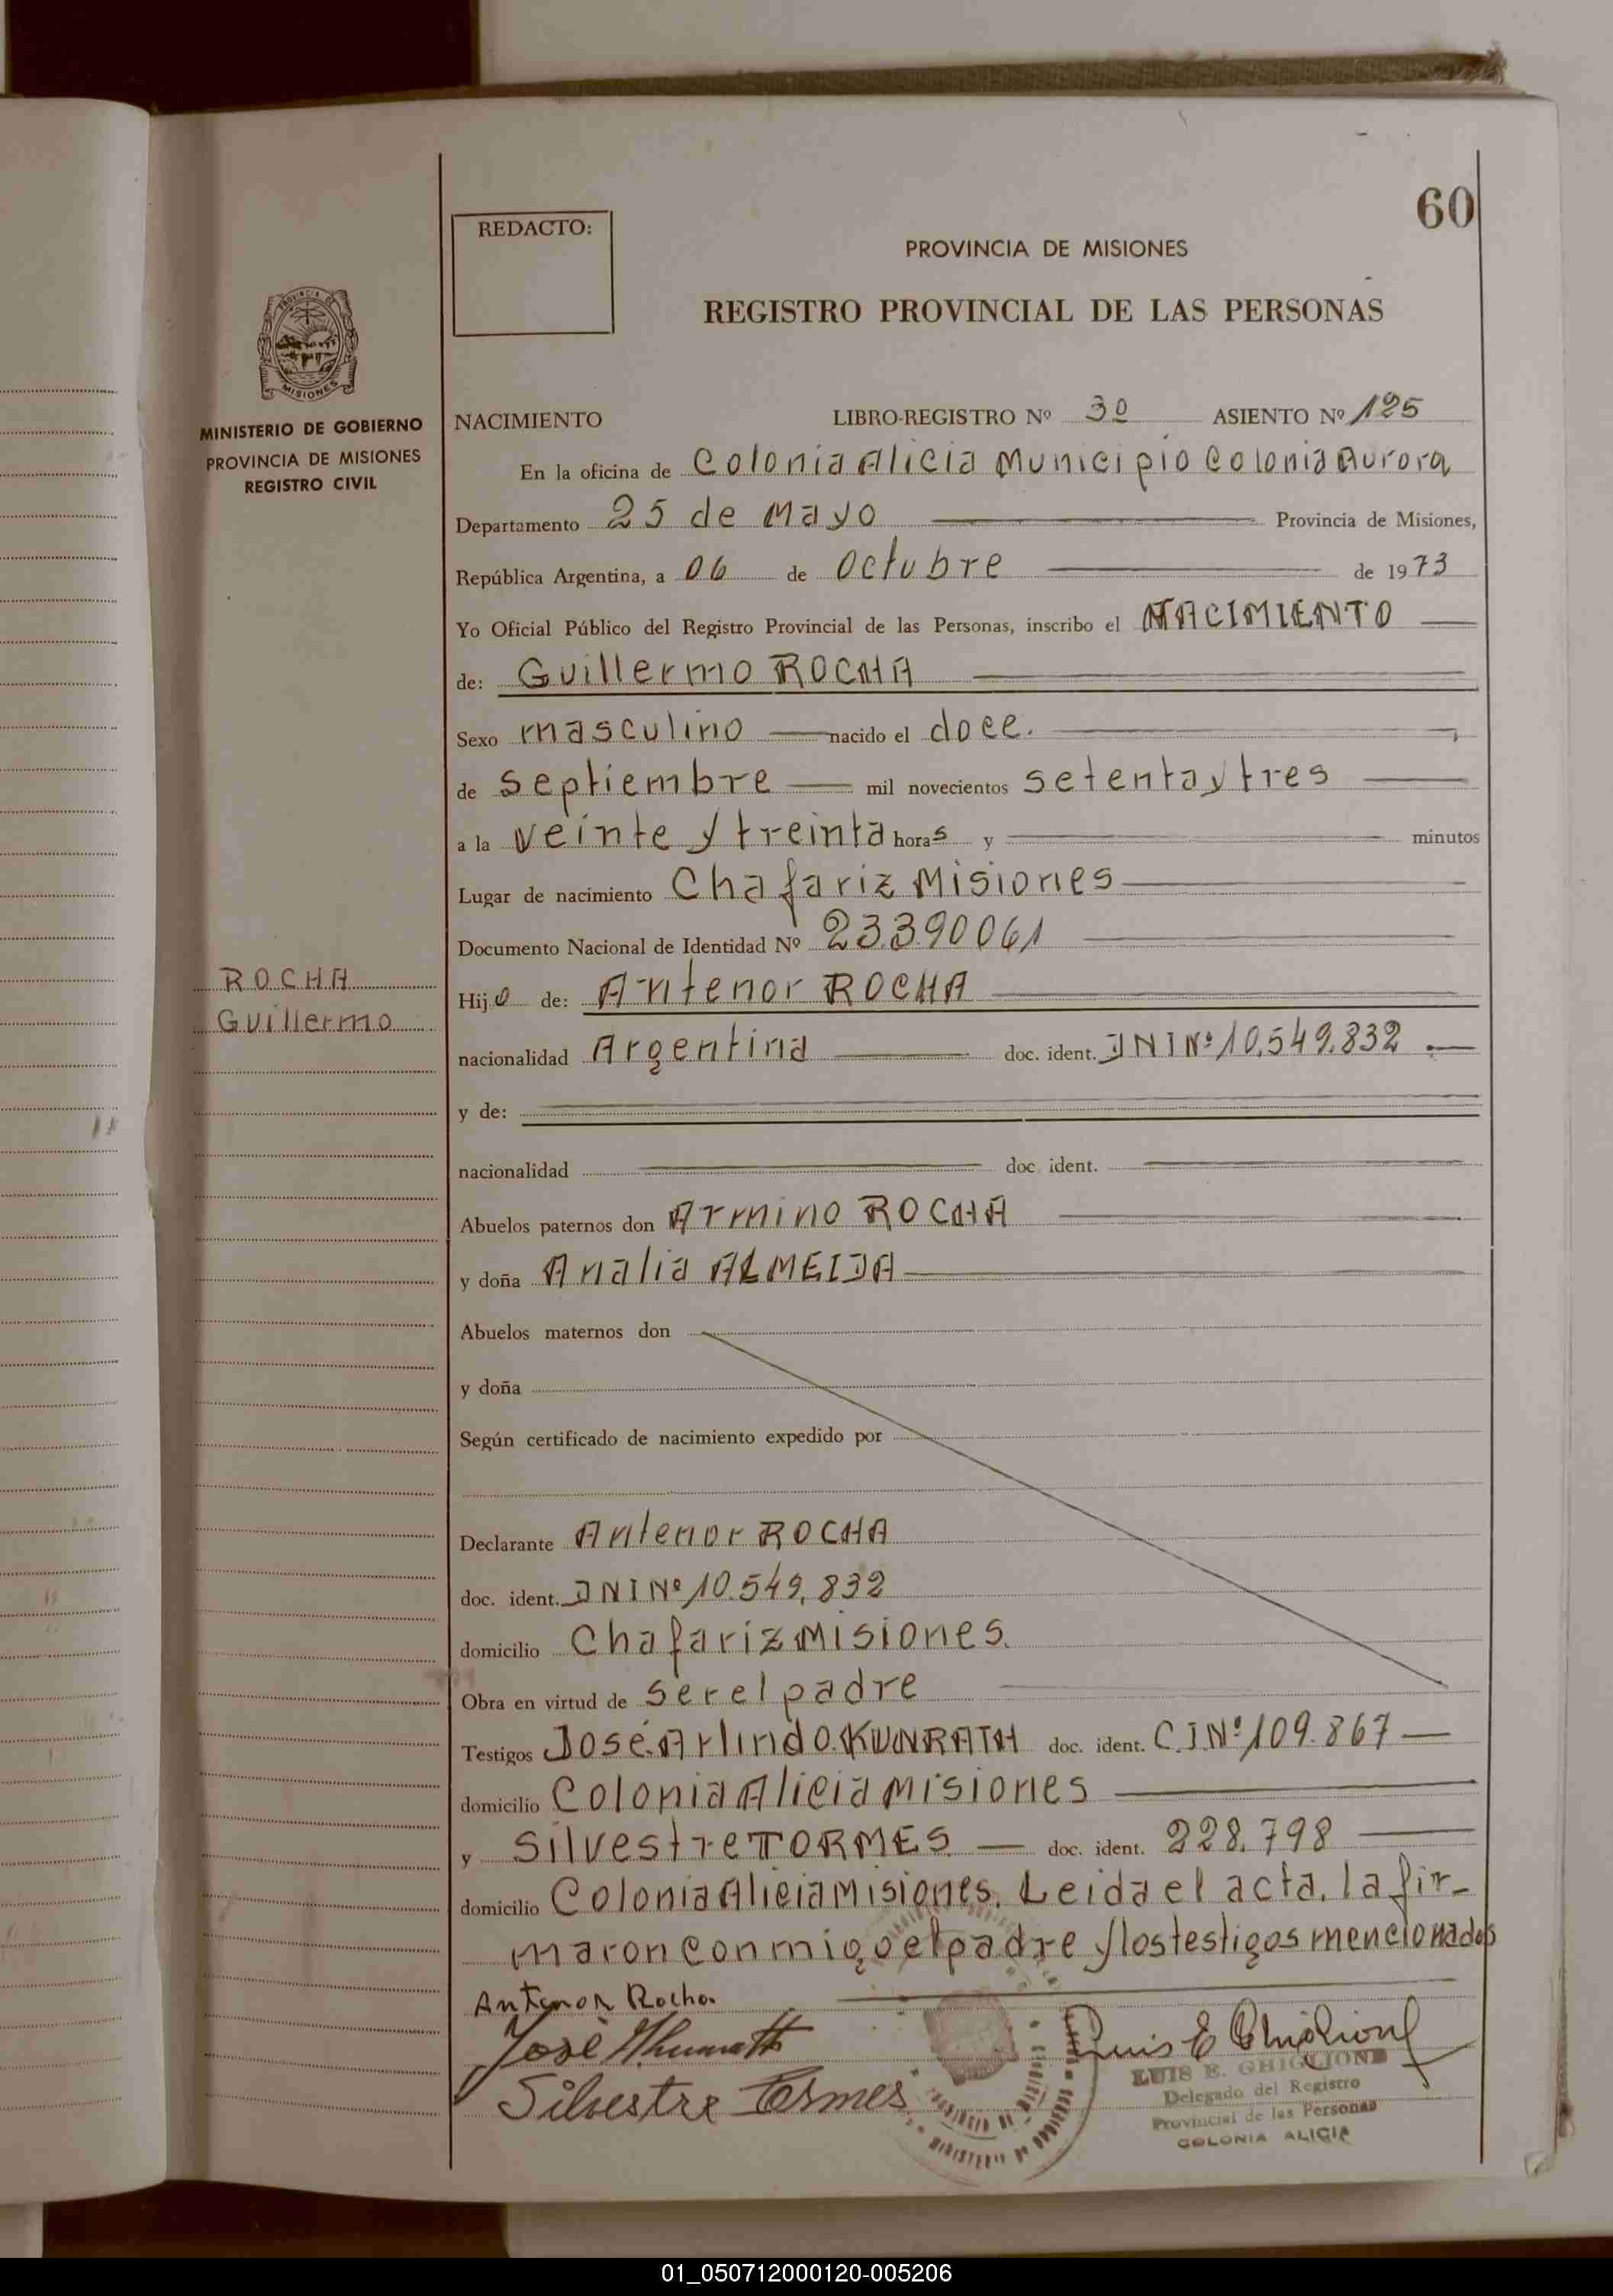 60
REDACTO:
PROVINCIA DE MISIONES
REGISTRO PROVINCIAL DE LAS PERSONAS
PROVINCIA DE MISIONES
MINISTERIO DE GOBIERNO
PROVINCIA DE MISIONES
REGISTRO CIVIL
NACIMIENTO LIBRO-REGISTRO Nº 30 ASIENTO Nº 125
En la oficina de Colonia Alicia Municipio Colonia Aurora
Departamento 25 de Mayo Provincia de Misiones,
República Argentina, a 06 de Octubre de 1973
Yo Oficial Público del Registro Provincial de las Personas, inscribo el NACIMIENTO
de: Guillermo ROCHA
Sexo masculino nacido el doce.
de septiembre mil novecientos setenta y tres
a la veinte y treinta horas y minutos
Lugar de nacimiento Chafariz Misiones
Documento Nacional de Identidad Nº 23.390061
ROCHA
Guillermo
Hijo de: Antenor ROCHA
nacionalidad Argentina doc. ident. DNI Nº 10.549.832
y de:
nacionalidad doc. ident.
Abuelos paternos don Armino ROCHA
y doña Analia ALMEIDA
Abuelos maternos don
y doña
Según certificado de nacimiento expedido por
Declarante Antenor ROCHA
doc. ident. DNI Nº 10.549,832
domicilio Chafariz Misiones.
Obra en virtud de ser el padre
Testigos José Arlindo KUNRATH doc. ident. C.I.Nº 109.867
domicilio Colonia Alicia Misiones
y Silvestre TORMES doc. ident. 228.798
domicilio Colonia Alicia Misiones. Leida el acta, la fir-
maron conmigo el padre y los testigos mencionados
Antenor Rocha
José
Silvestre Tormes
Luis E Ghiglione
LUIS E. GHIGLIONE
Delegado del Registro
Provincial de las Personas
COLONIA ALICIA
01_050712000120-005206